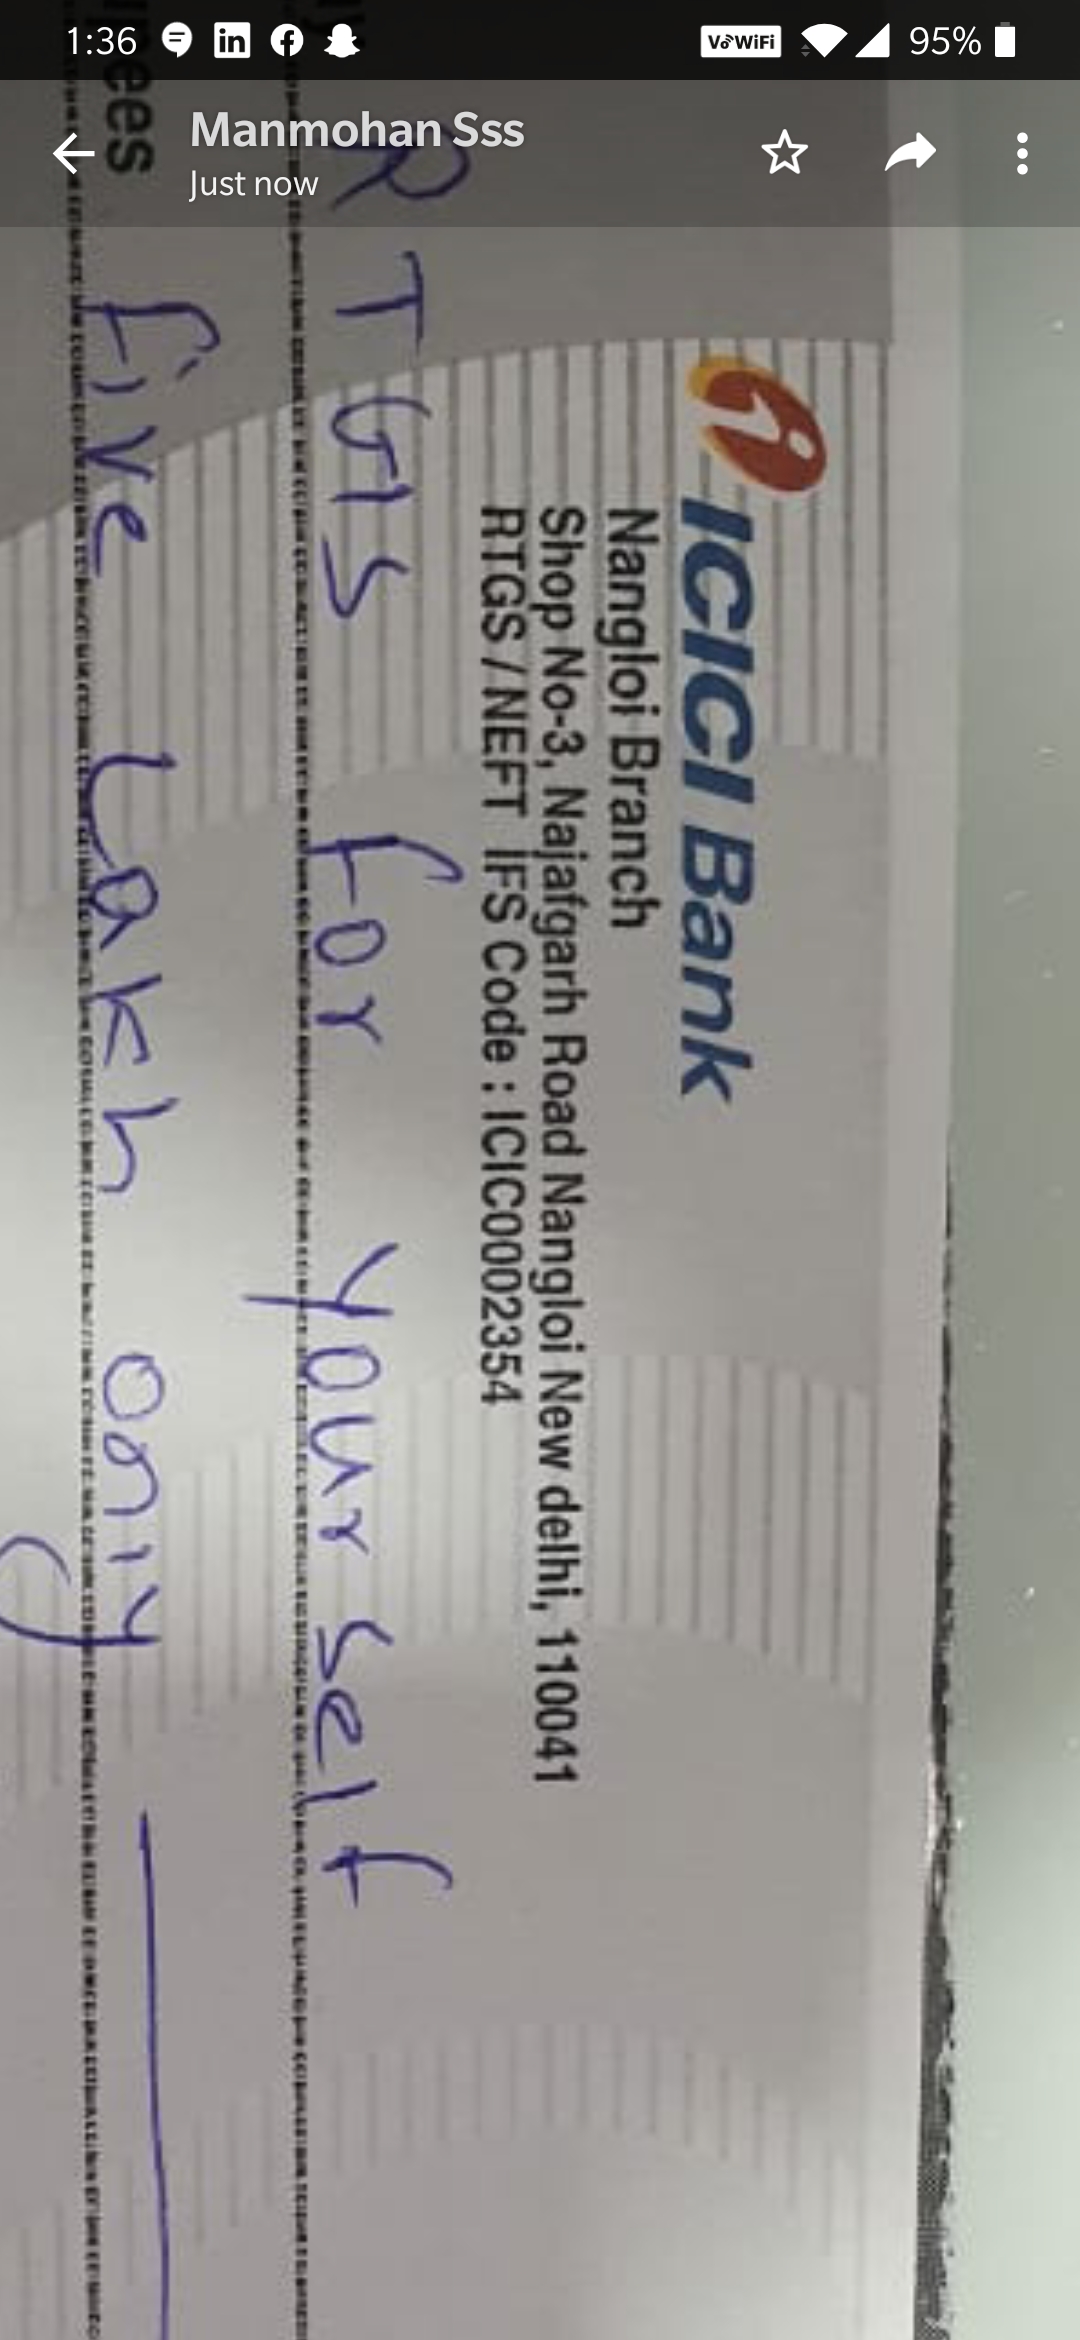 1:36
Vo WiFi
95%
Manmohan Sss
Just now
ICICI Bank
Nangloi Branch
Shop No-3, Najafgarh Road Nangloi New delhi, 110041
RTGS / NEFT IFS Code : ICIC0002354
RTGS for yourself
Five Lakh only